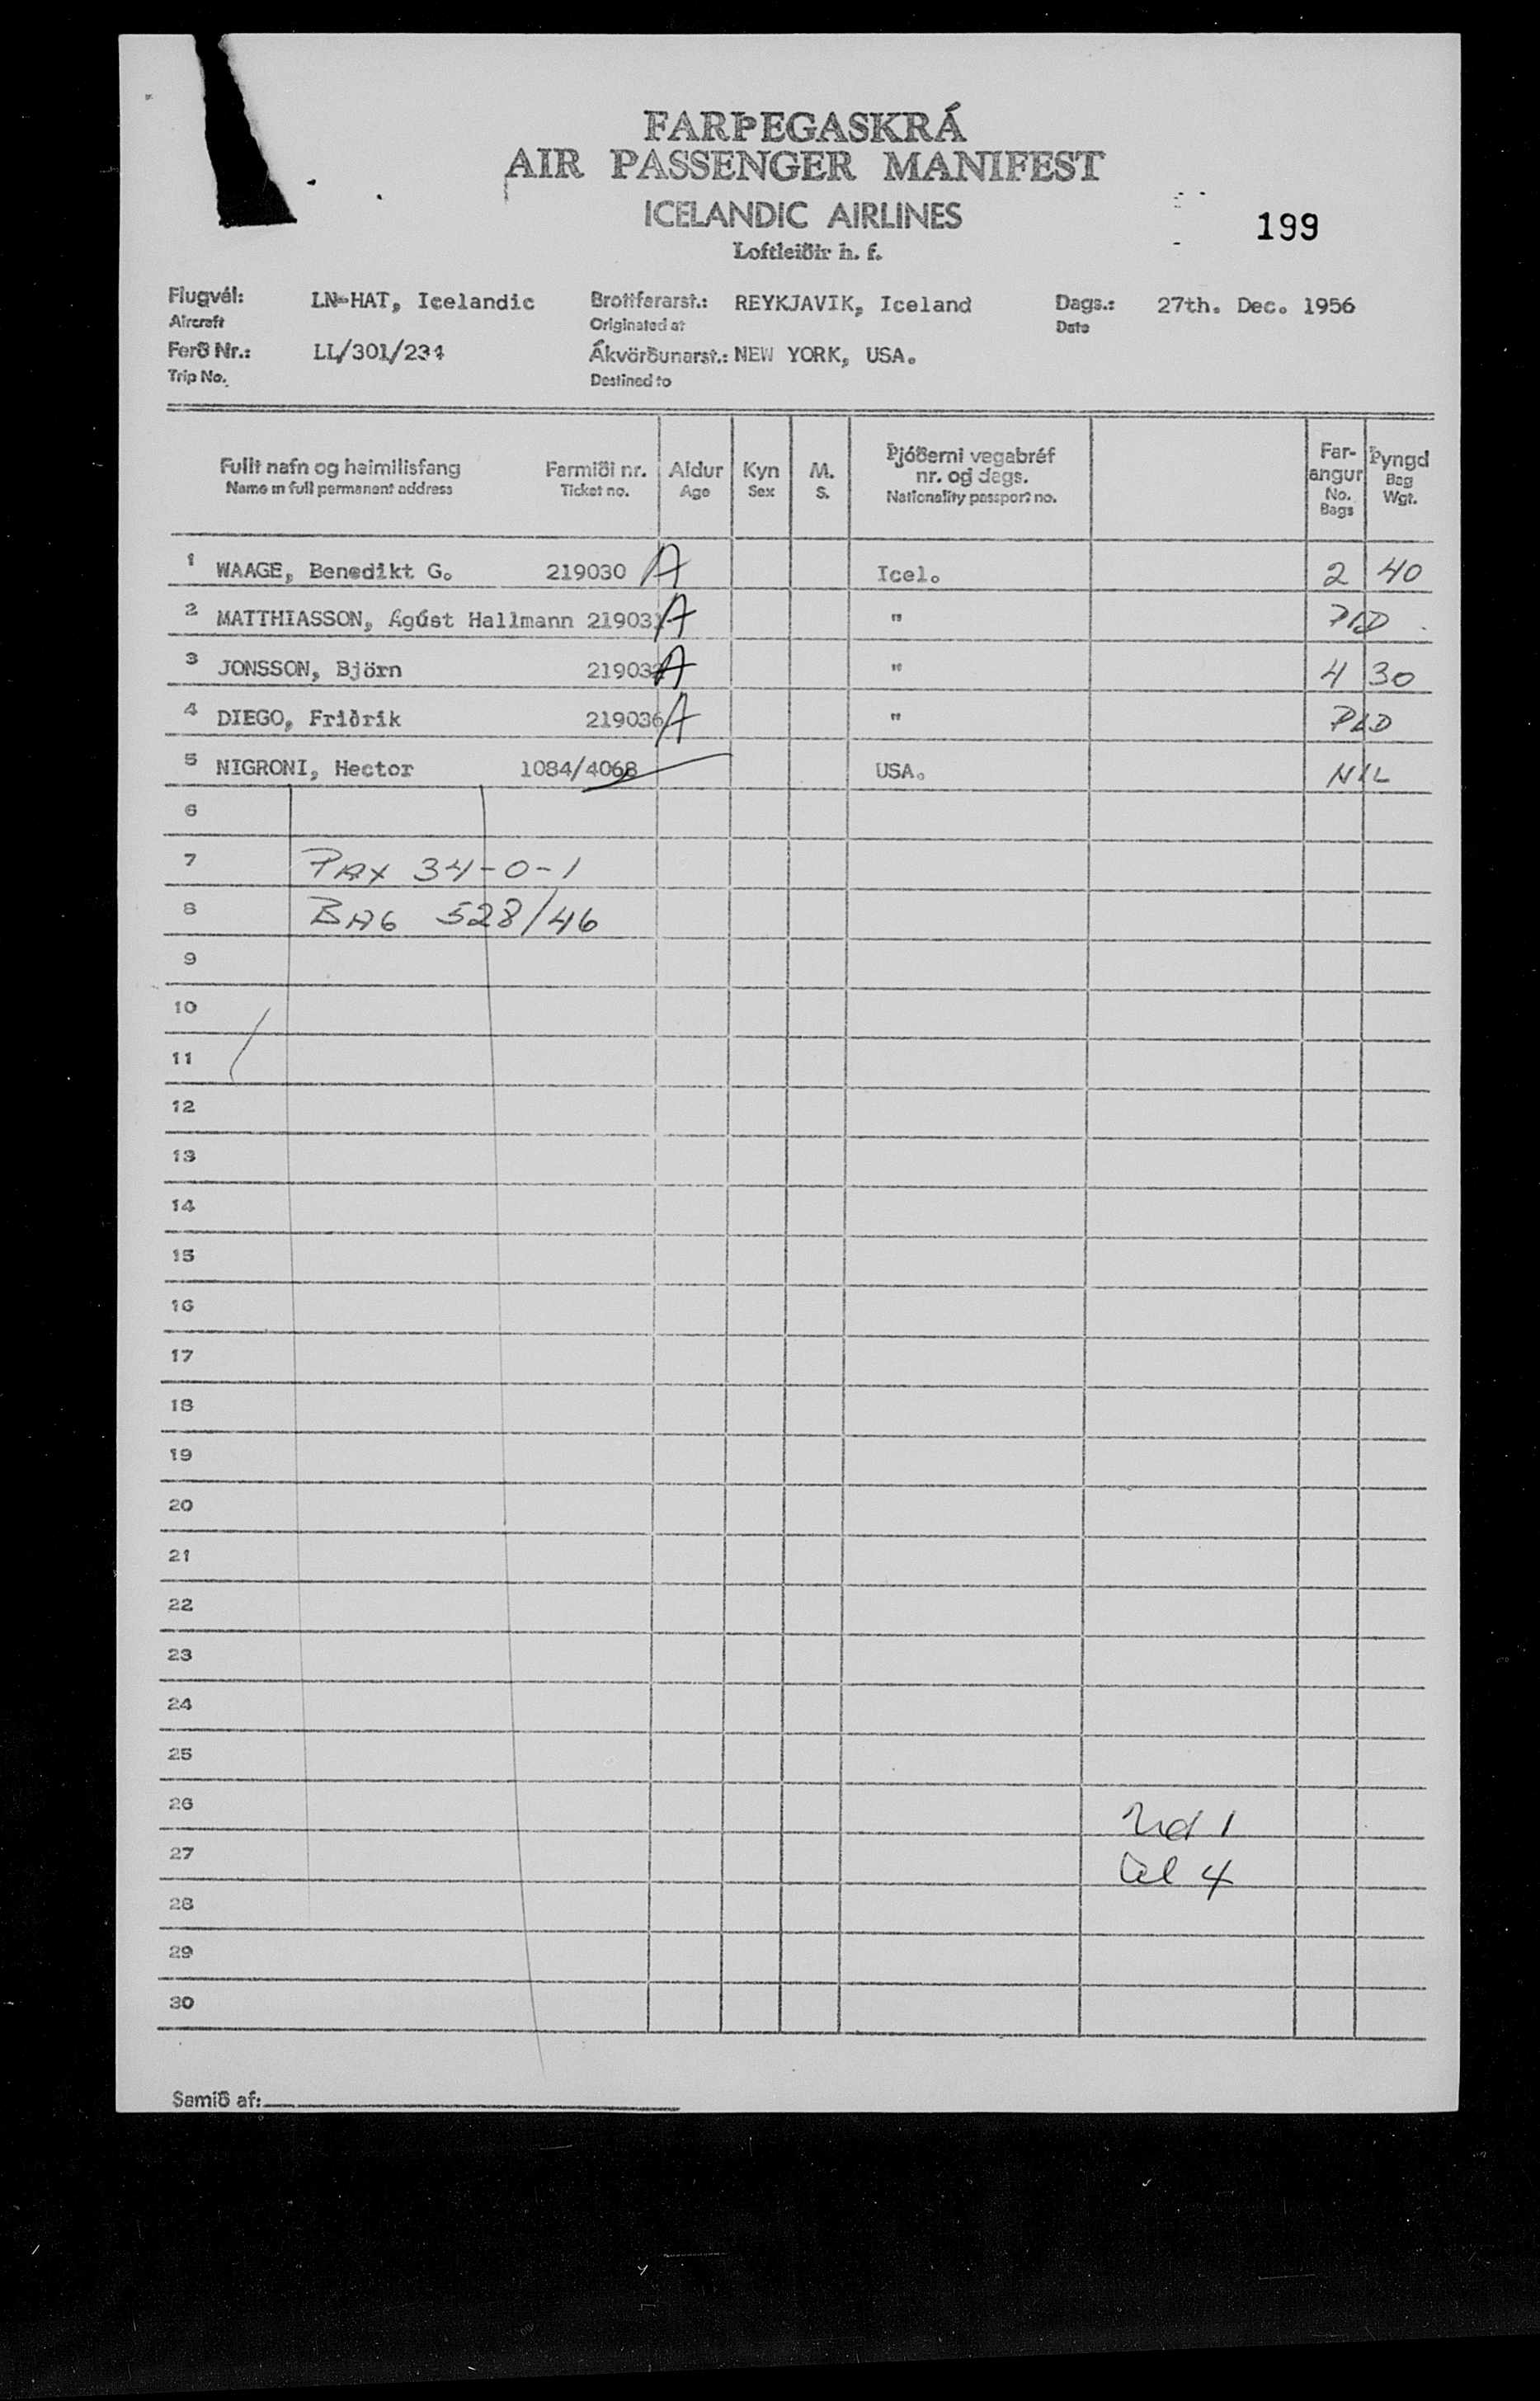 FARÞEGASKRÁ
AIR PASSENGER MANIFEST
ICELANDIC AIRLINES
Loftleiðir h. f.
199
Flugvél: LN-HAT, Icelandic Brottfararst.: REYKJAVIK, Iceland Dags.: 27th. Dec. 1956
Aircraft Originated at Date
Ferð Nr.: LL/301/234 Ákvörðunarst.: NEW YORK, USA.
Trip No. Destined to
Fullt nafn og heimilisfang Farmiði nr. Aldur Kyn M. Þjóðerni vegabréf nr. og dags. Farangur Þyngd
Name in full permanent address Ticket no. Age Sex S. Nationality passport no. No. Bags Bag Wgt.
1 WAAGE, Benedikt G. 219030 A Icel. 2 40
2 MATTHIASSON, Ágúst Hallmann 219031 A " PLD
3 JONSSON, Björn 219032 A " 4 30
4 DIEGO, Friðrik 219036 A " PLD
5 NIGRONI, Hector 1084/4068 USA. NIL
6
7 PAX 34-0-1
8 BAG 528/46
9
10
11
12
13
14
15
16
17
18
19
20
21
22
23
24
25
26 1
27 4
28
29
30
Samið af: